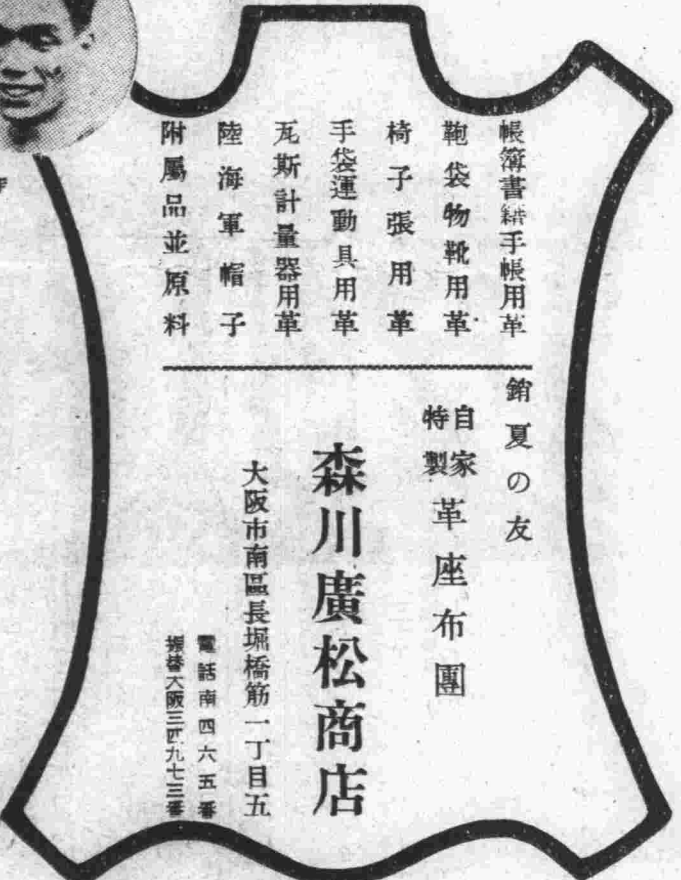 帳簿書籍手帳用革
鞄袋物靴用革
椅子張用革
手袋運動具用革
瓦斯計量器用革
陸海軍帽子
附屬品並原料
銷夏の友
自家特製 革座布團
森川廣松商店
大阪市南區長堀橋筋一丁目五
電話南四六五番
振替大阪三四九七三番